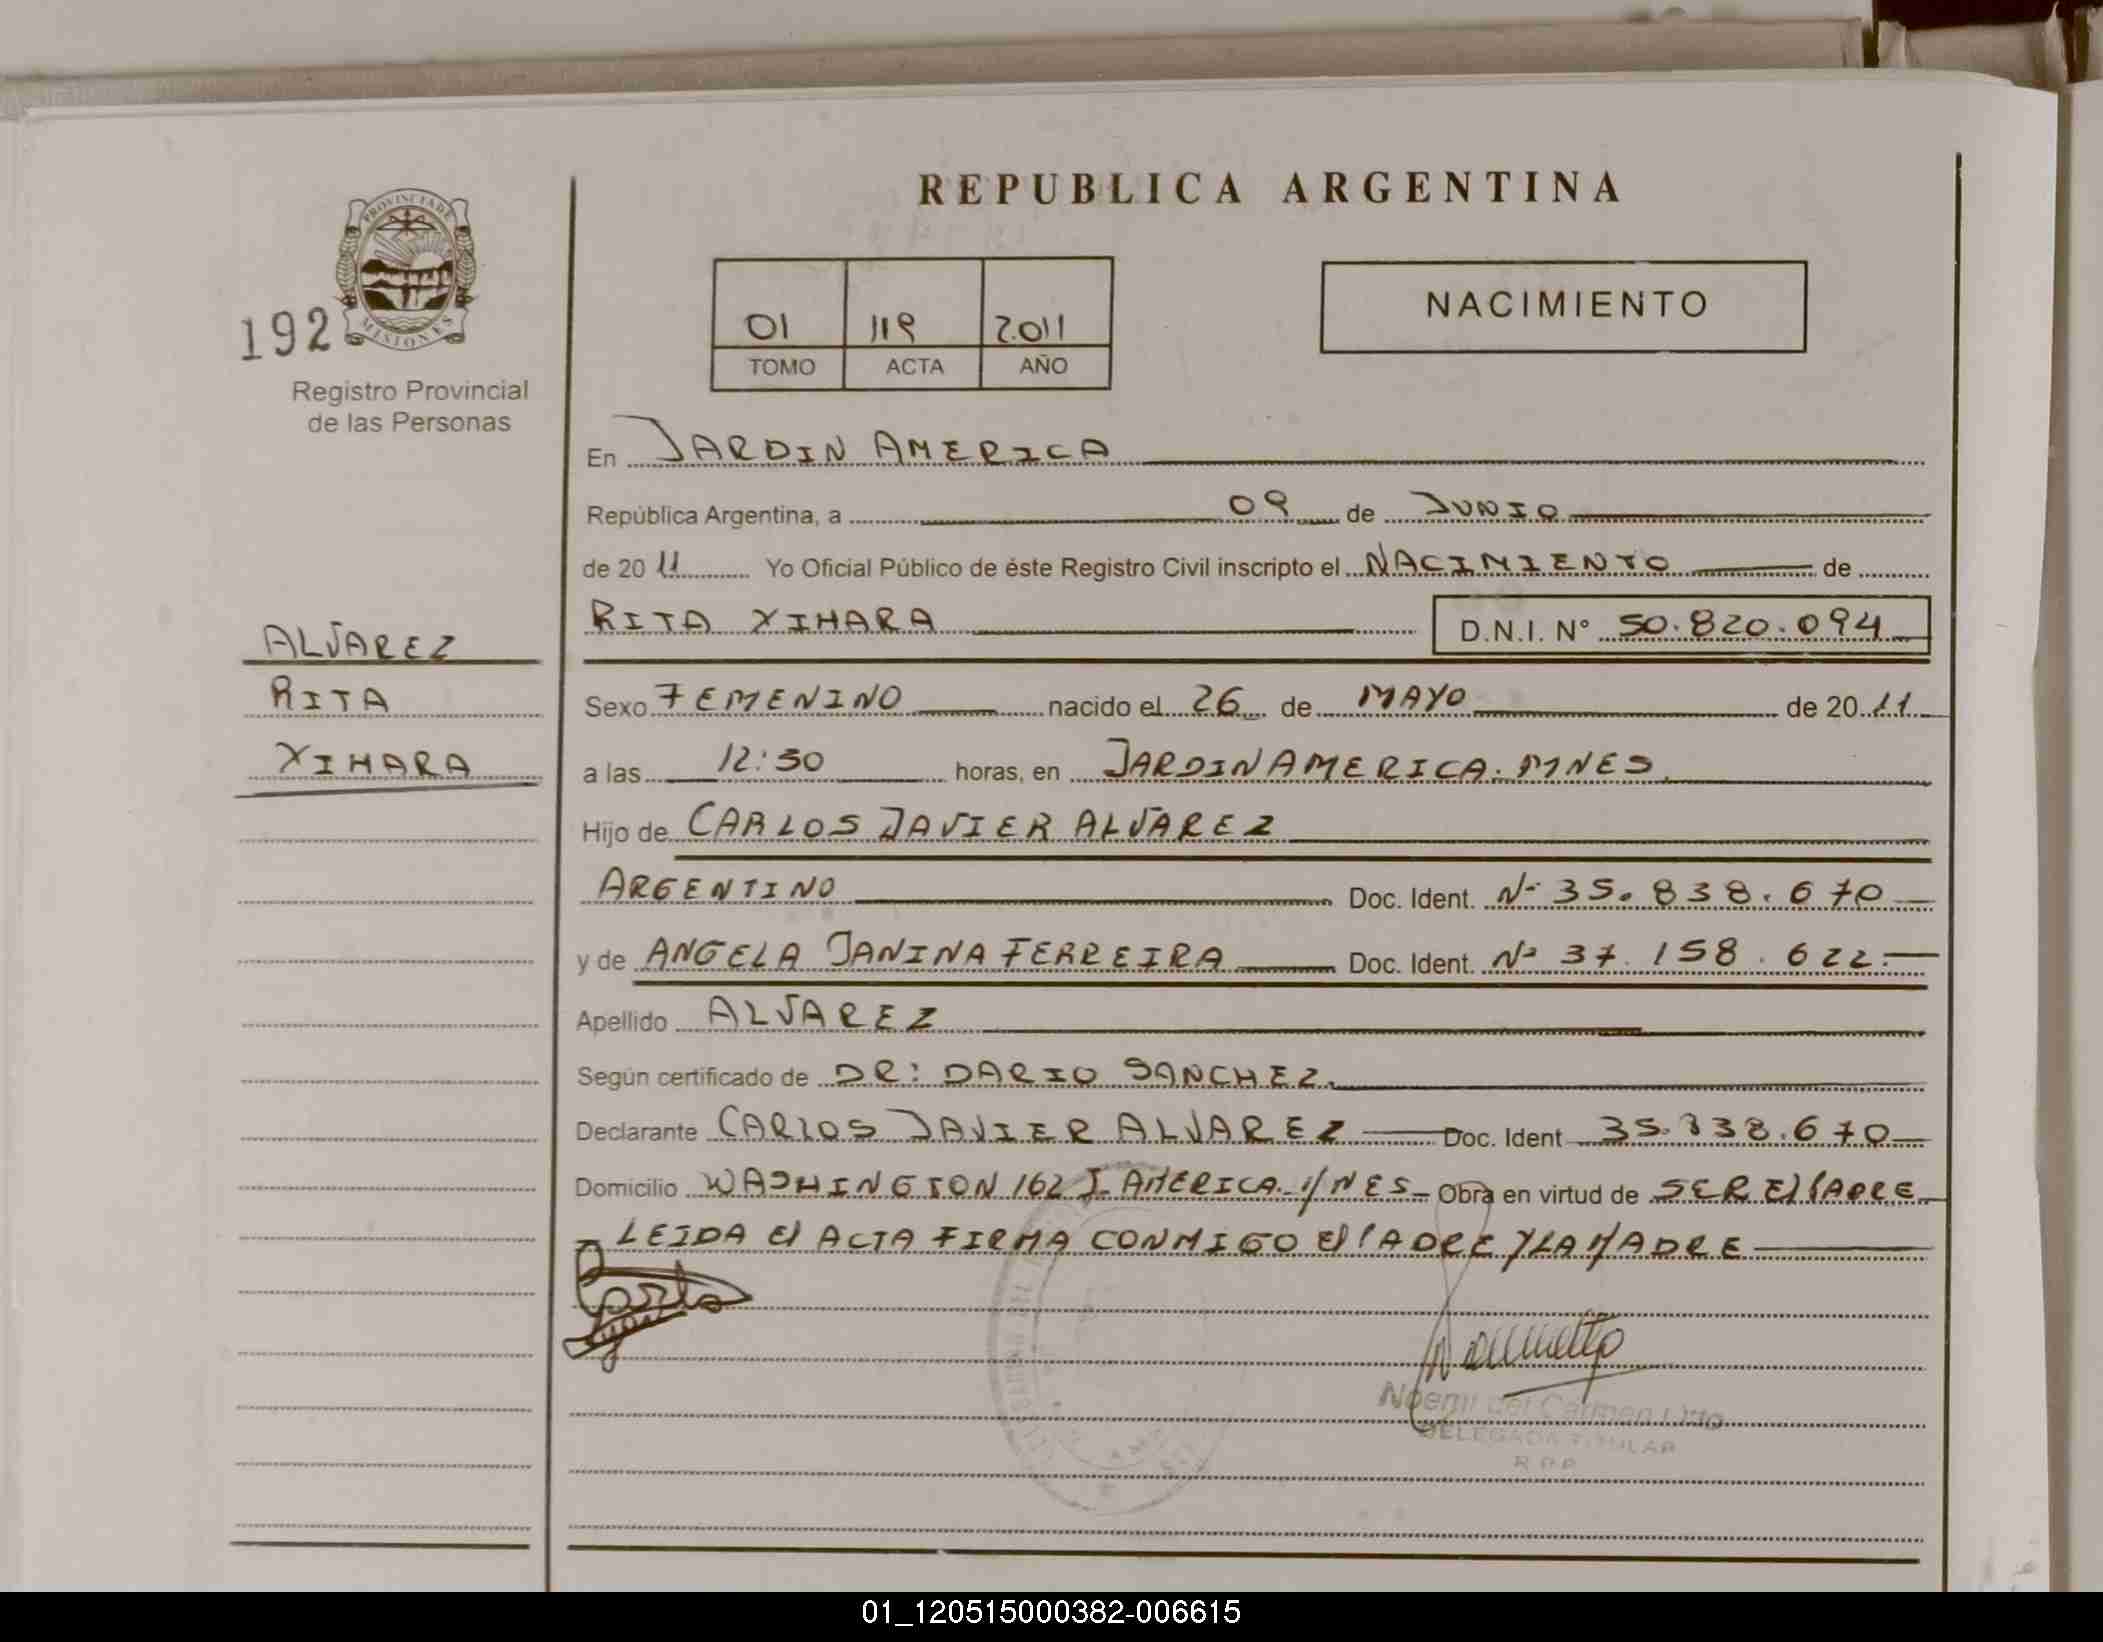 REPUBLICA ARGENTINA
PROVINCIA DE
MISIONES
192
Registro Provincial
de las Personas
01 119 2.011
TOMO ACTA AÑO
NACIMIENTO
En JARDIN AMERICA
República Argentina, a 09 de JUNIO
de 20 11 Yo Oficial Público de éste Registro Civil inscripto el NACIMIENTO de
RITA XIMARA D.N.I. Nº 50.820.094
ALVAREZ
RITA
XIMARA
Sexo FEMENINO nacido el 26 de MAYO de 20 11
a las 12:30 horas, en JARDIN AMERICA. MNES
Hijo de CARLOS JAVIER ALVAREZ
ARGENTINO Doc. Ident. Nº 35.838.670
y de ANGELA JANINA FERREIRA Doc. Ident. Nº 37.158.622.
Apellido ALVAREZ
Según certificado de DR: DARIO SANCHEZ.
Declarante CARLOS JAVIER ALVAREZ Doc. Ident 35.838.670
Domicilio WASHINGTON 162 J. AMERICA. MNES Obra en virtud de SER El PADRE
LEIDA El ACTA FIRMA CONMIGO El PADRE Y LA MADRE
Noemi del Carmen Otto
DELEGADA TITULAR
R.P.P.
01_120515000382-006615